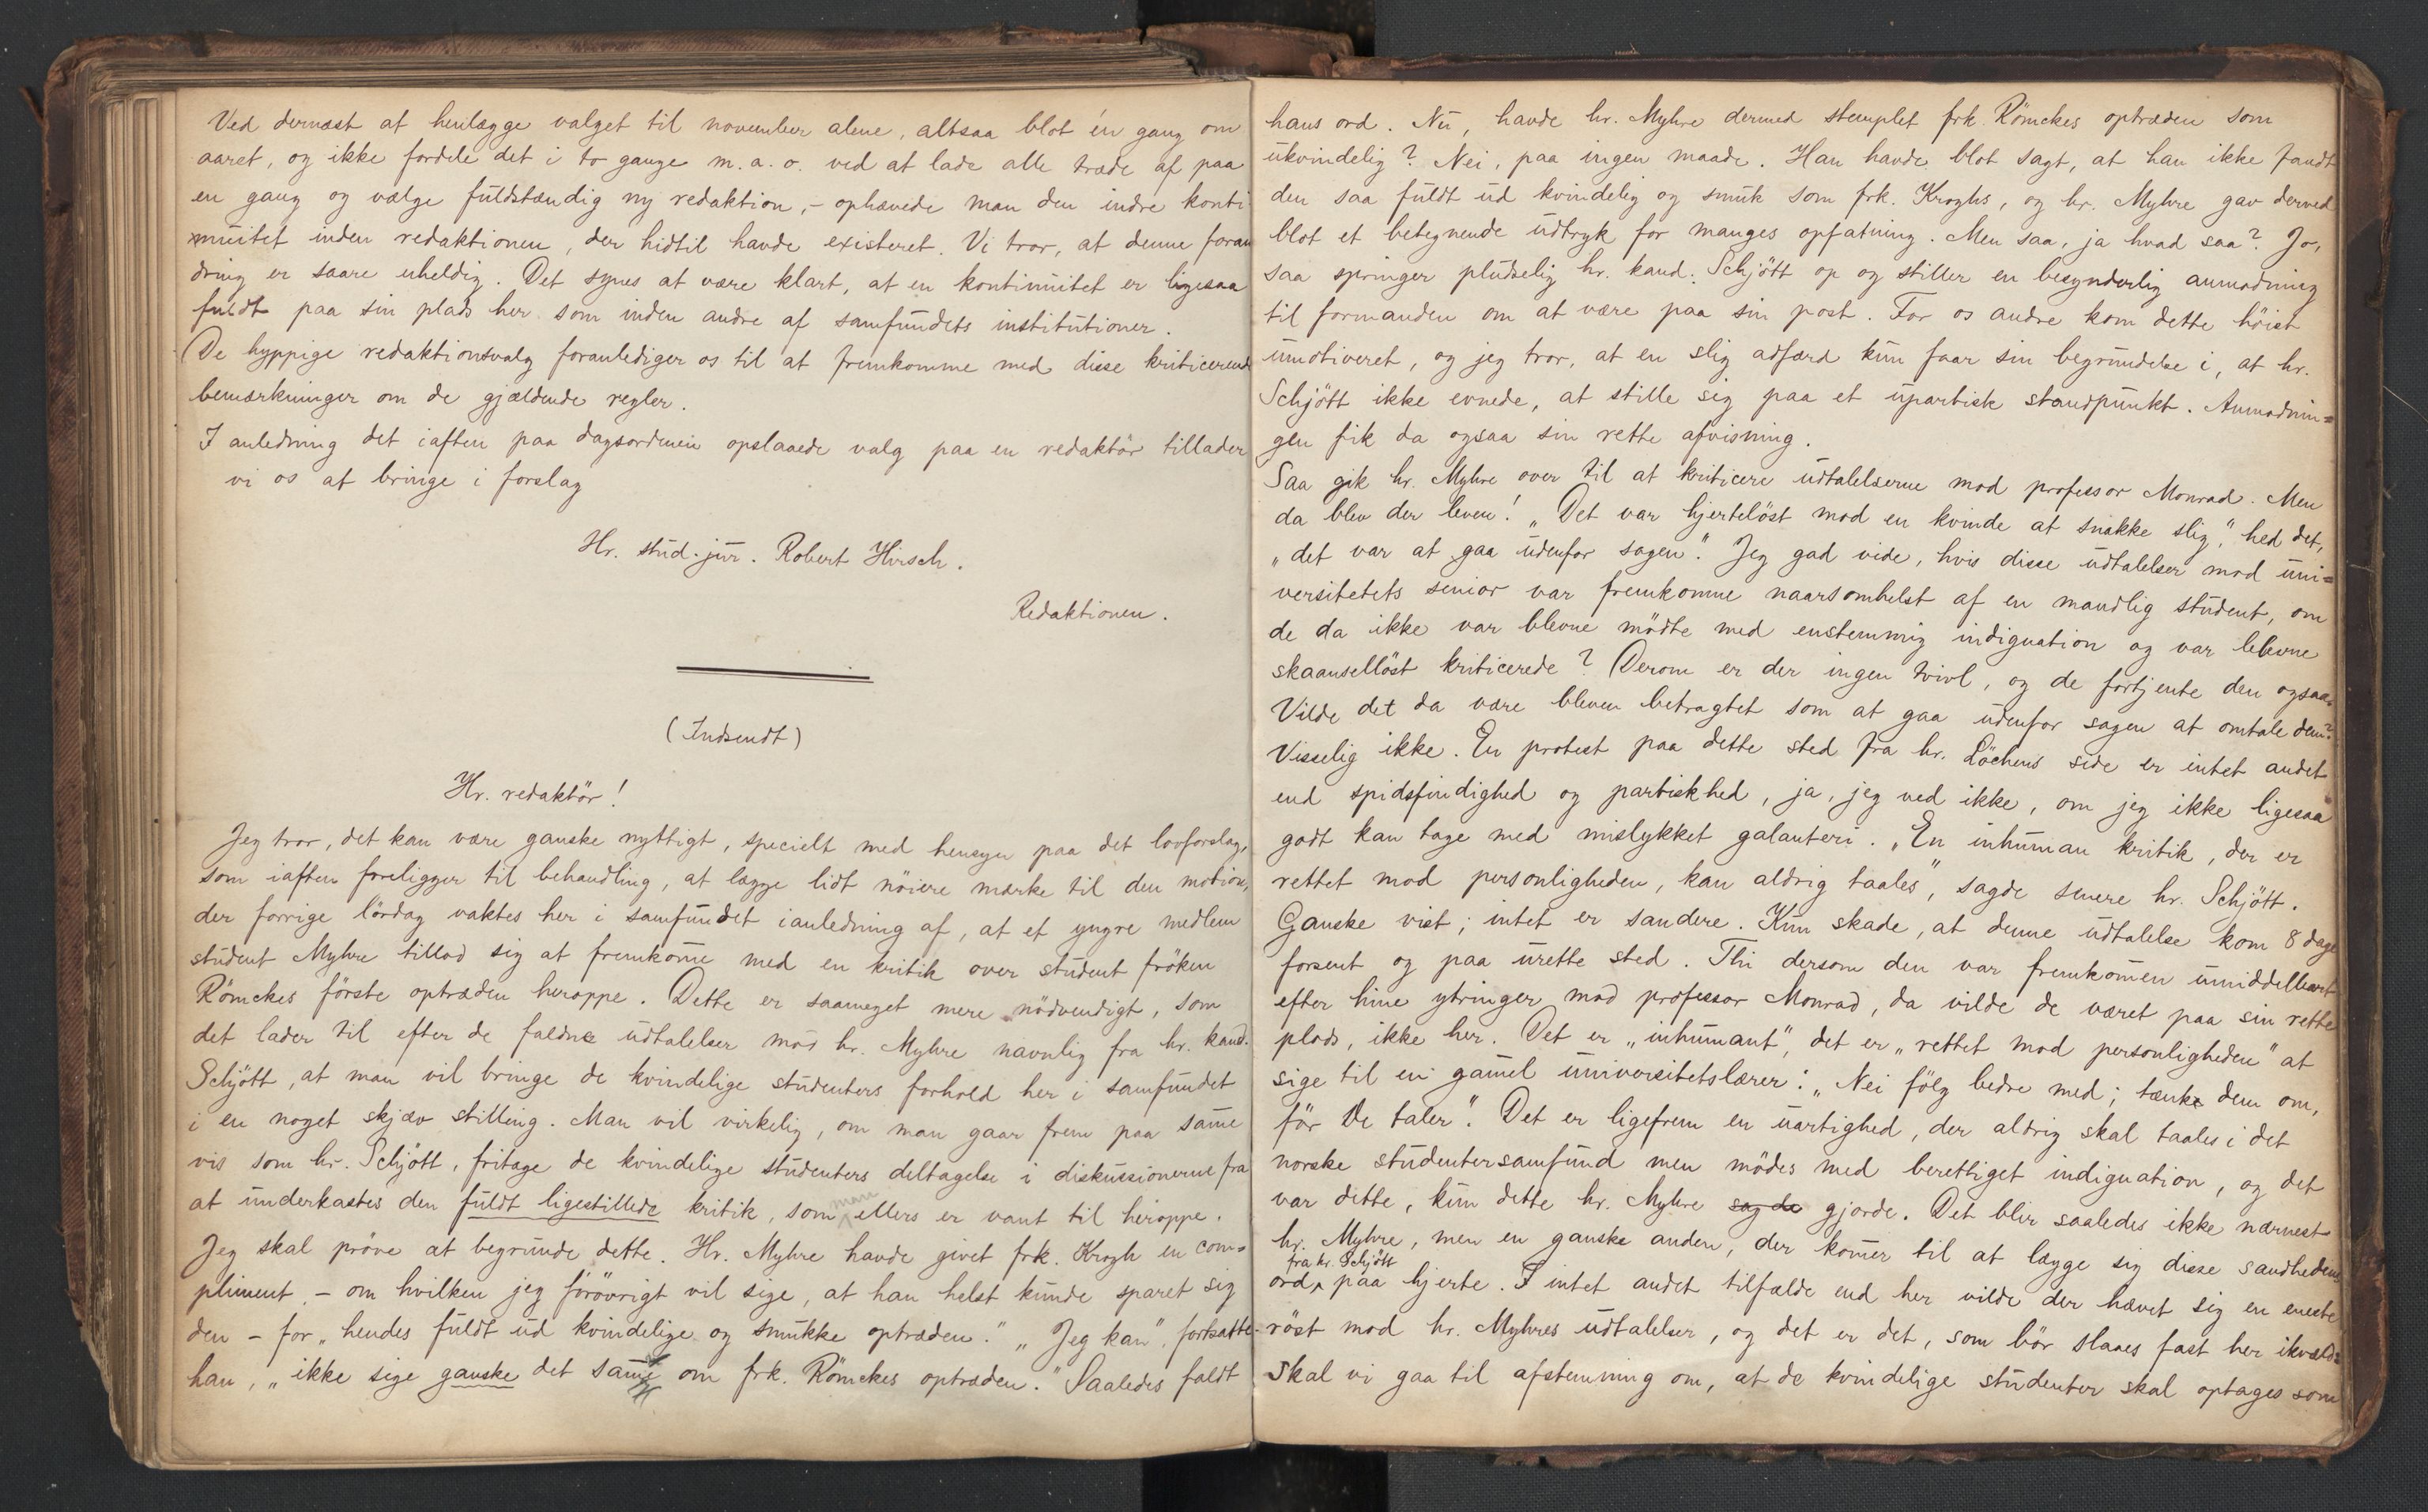 Ved dernæst at henlægge valget til november alene, altsaa blot én gang om
aaret, og ikke fordele det i to gange m. a. o. ved at lade alle træde af paa
en gang og vælge fuldstændig ny redaktion, – ophævede man den indre konti-
nuitet inden redaktionen, der hidtil havde existeret. Vi tror, at denne foran
dring er saare uheldig. Det synes at være klart, at en kontinuitet er ligesaa
fuldt paa sin plads her som inden andre af samfundets institutioner.
De hyppige redaktionsvalg foranlediger os til at fremkomme med disse kriticerende
bemærkninger om de gjældende regler.
I anledning det iaften paa dagsordenen opslaaede valg paa en redaktör tillader
vi os at bringe i forslag
Hr. stud. jur. Robert Hirsch.
Redaktionen.
(Indsendt)
Hr. redaktör!
Jeg tror, det kan være ganske nyttigt, specielt med hensyn paa det lovforslag,
som iaften foreligger til behandling, at lægge lidt nöiere mærke til den motion,
der forrige lördag vaktes her i samfundet ianledning af, at et yngre medlem
student Myhre tillod sig at fremkomme med en kritik over student fröken
Römckes förste optræden heroppe. Dette er saameget mere nödvendigt, som
det lader til efter de faldne udtalelser mod hr. Myhre navnlig fra hr. kand.
Schjött, at man vil bringe de kvindelige studenters forhold her i samfundet
i en noget skjæv stilling. Man vil virkelig, om man gaar frem paa samme
vis som hr. Schjött, fritage de kvindelige studenters deltagelse i diskussionerne fra
at underkastes den fuldt ligestillede kritik, som man ellers er vant til heroppe.
Jeg skal pröve at begrunde dette. Hr. Myhre havde givet frk. Krogh en com=
pliment – om hvilken jeg forövrigt vil sige, at han helst kunde sparet sig
den – for „hendes fuldt ud kvindelige og smukke optræden." „Jeg kan", fortsatte
han, „ikke sige ganske det samme om frk. Römckes optræden." Saaledes faldt
hans ord. Nu, havde hr. Myhre dermed stemplet frk. Römckes optræden som
ukvindelig? Nei, paa ingen maade. Han havde blot sagt, at han ikke fandt
den saa fuldt ud kvindelig og smuk som frk. Kroghs, og hr. Myhre gav derved
blot et betegnende udtryk for manges opfatning. Men saa, ja hvad saa? Jo,
saa springer pludselig hr. kand. Schjött op og stiller en besynderlig anmodning
til formanden om at være paa sin post. For os andre kom dette höist
umotiveret, og jeg tror, at en slig adfærd kun faar sin begrundelse i, at hr.
Schjött ikke evnede, at stille sig paa et upartisk standpunkt. Anmodnin=
gen fik da ogsaa sin rette afvisning.
Saa gik hr. Myhre over til at kriticere udtalelserne mod professor Monrad. Men
da blev der leven! „Det var hjertelöst mod en kvinde at snakke slig," hed det,
„det var at gaa udenfor sagen." Jeg gad vide, hvis disse udtalelser mod uni=
versitetets senior var fremkomne naarsomhelst af en mandlig student, om
de da ikke var blevne mödte med enstemmig indignation og var blevne
skaanselløst kriticerede? Derom er der ingen tvivl, og de fortjente den ogsaa.
Vilde det da være bleven betragtet som at gaa udenfor sagen at omtale dem?
Visselig ikke. En protest paa dette sted fra hr. Löchens side er intet andet
end spidsfindighed og partiskhed, ja, jeg ved ikke, om jeg ikke ligesaa
godt kan tage med mislykket galanteri. „En inhuman kritik, der er
rettet mod personligheden, kan aldrig taales", sagde senere hr. Schjött.
Ganske vist; intet er sandere. Kun skade, at denne udtalelse kom 8 dage
forsent og paa urette sted. Thi dersom den var fremkommen umiddelbart
efter hine ytringer mod professor Monrad, da vilde de været paa sin rette
plads, ikke her. Det er „inhumant", det er „rettet mod personligheden" at
sige til en gammel universitetslærer: „Nei fölg bedre med; tænke dem om,
för De taler." Det er ligefrem en uartighed, der aldrig skal taales i det
norske studentersamfund men mödes med berettiget indignation, og det
var dette, kun dette hr. Myhre sagde gjorde. Det blir saaledes ikke nærmest
hr. Myhre, men en ganske anden, der kommer til at lægge sig disse sandhedens
ord fra hr. Schjött paa hjerte. I intet andet tilfælde end her vilde der hævet sig en eneste
röst mod hr. Myhres udtalelser, og det er det, som bör slaaes fast her ikvæld:
Skal vi gaa til afstemning om, at de kvindelige studenter skal optages som